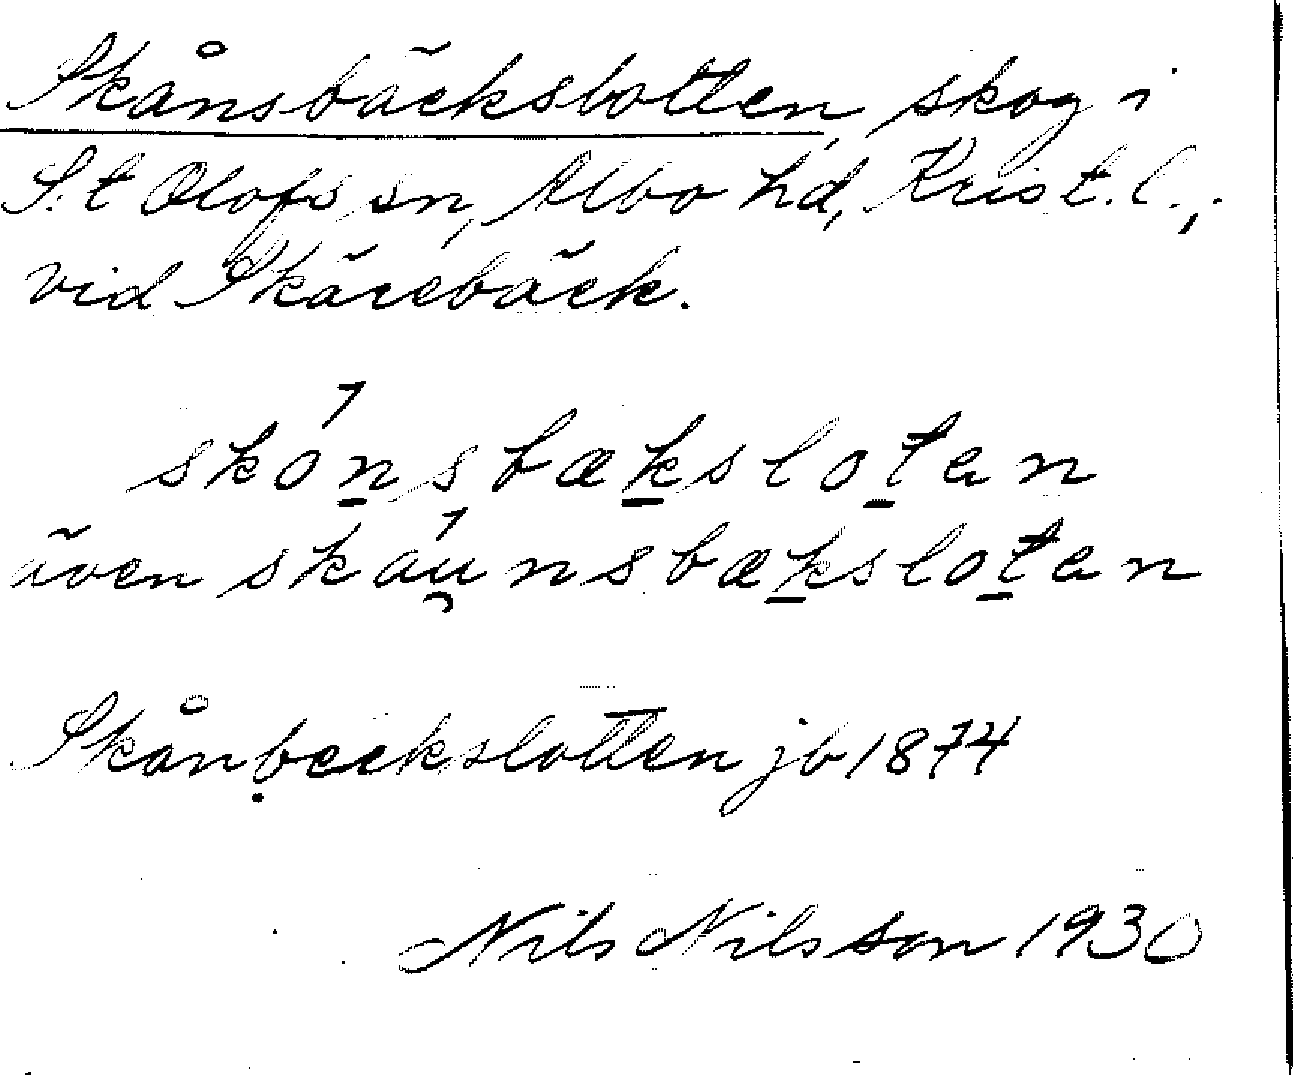 Skånsbäckslotten, skog i
S:t Olofs sn, Albo hd, Krist. l.,
vid Skärebäck.
skónsbækslotan
även skáu̯nsbækslotan
Skånbeckslotten jb 1874
Nils Nilsson 1930